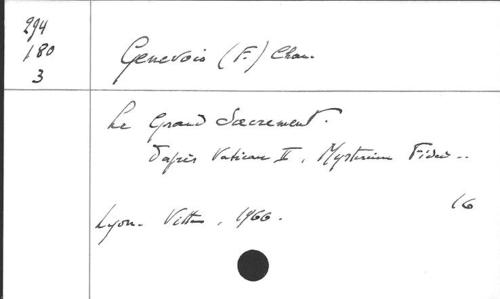 294
180
3
Genevois (F.) Chan.
Le Grand Sacrement.
d'après Vatican II, Mysterium Fidei..
16
Lyon. Vitte, 1966.